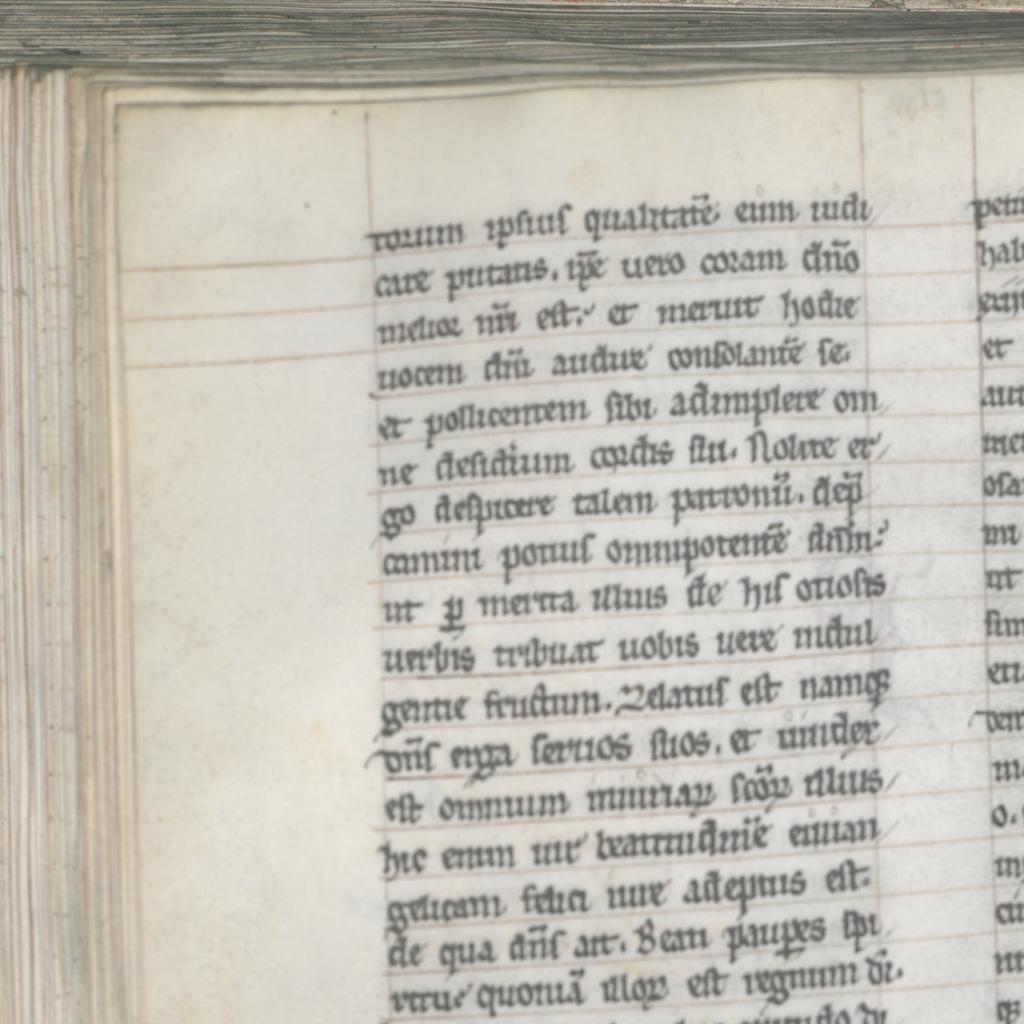 torum ipsius qualitatē eum iudi
care putatis. ip̄e uero coram dn̄o
melior nr̄i est. et meruit hodie
uocem dn̄i audire consolantē se.
et pollicentem sibi adimplere om
ne desidium cordis sui. Nolite er
go despicere talem patronū. dep̄
camini potius omnipotentē dn̄m.
ut ꝑ merita illius de his otiosis
uerbis tribuat uobis uere indul
gentie fructum. Zelatus est namqꝫ
dn̄s erga seruos suos. et uindex
est omnium iniuriaꝝ sc̄oꝝ illius
hic enim uir beatitudinē euuan
gelicam felici iure adeptus est.
de qua dn̄s ait. Beati pauꝑes spi
ritu quoniā illoꝝ est regnum dī.
petri
hab
et
aut
mer
osa
in
ut
sim